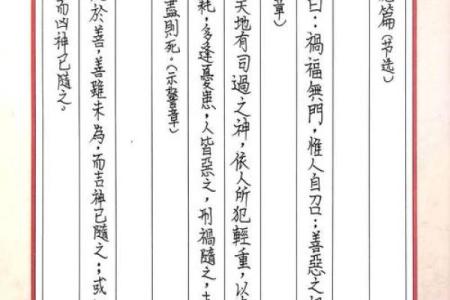 篇(节选)
曰：禍福無門，惟人自召；善惡之
章)
天地有司過之神，依人所犯輕重，以
耗，多逢憂患，人皆惡之，刑禍隨之，
盡則死。(示警章)
於善，善雖未為，而吉神已隨之；或
而凶神已隨之。